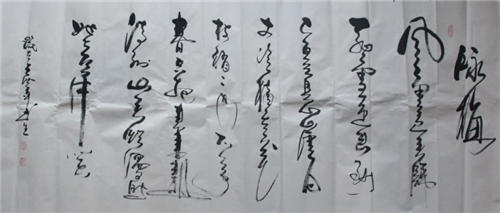 詠梅
风雨送春归
飞雪迎春到
已是悬崖百
丈冰犹有花
枝俏俏也不争
春只把春来报
待到山花烂漫时
她在丛中笑